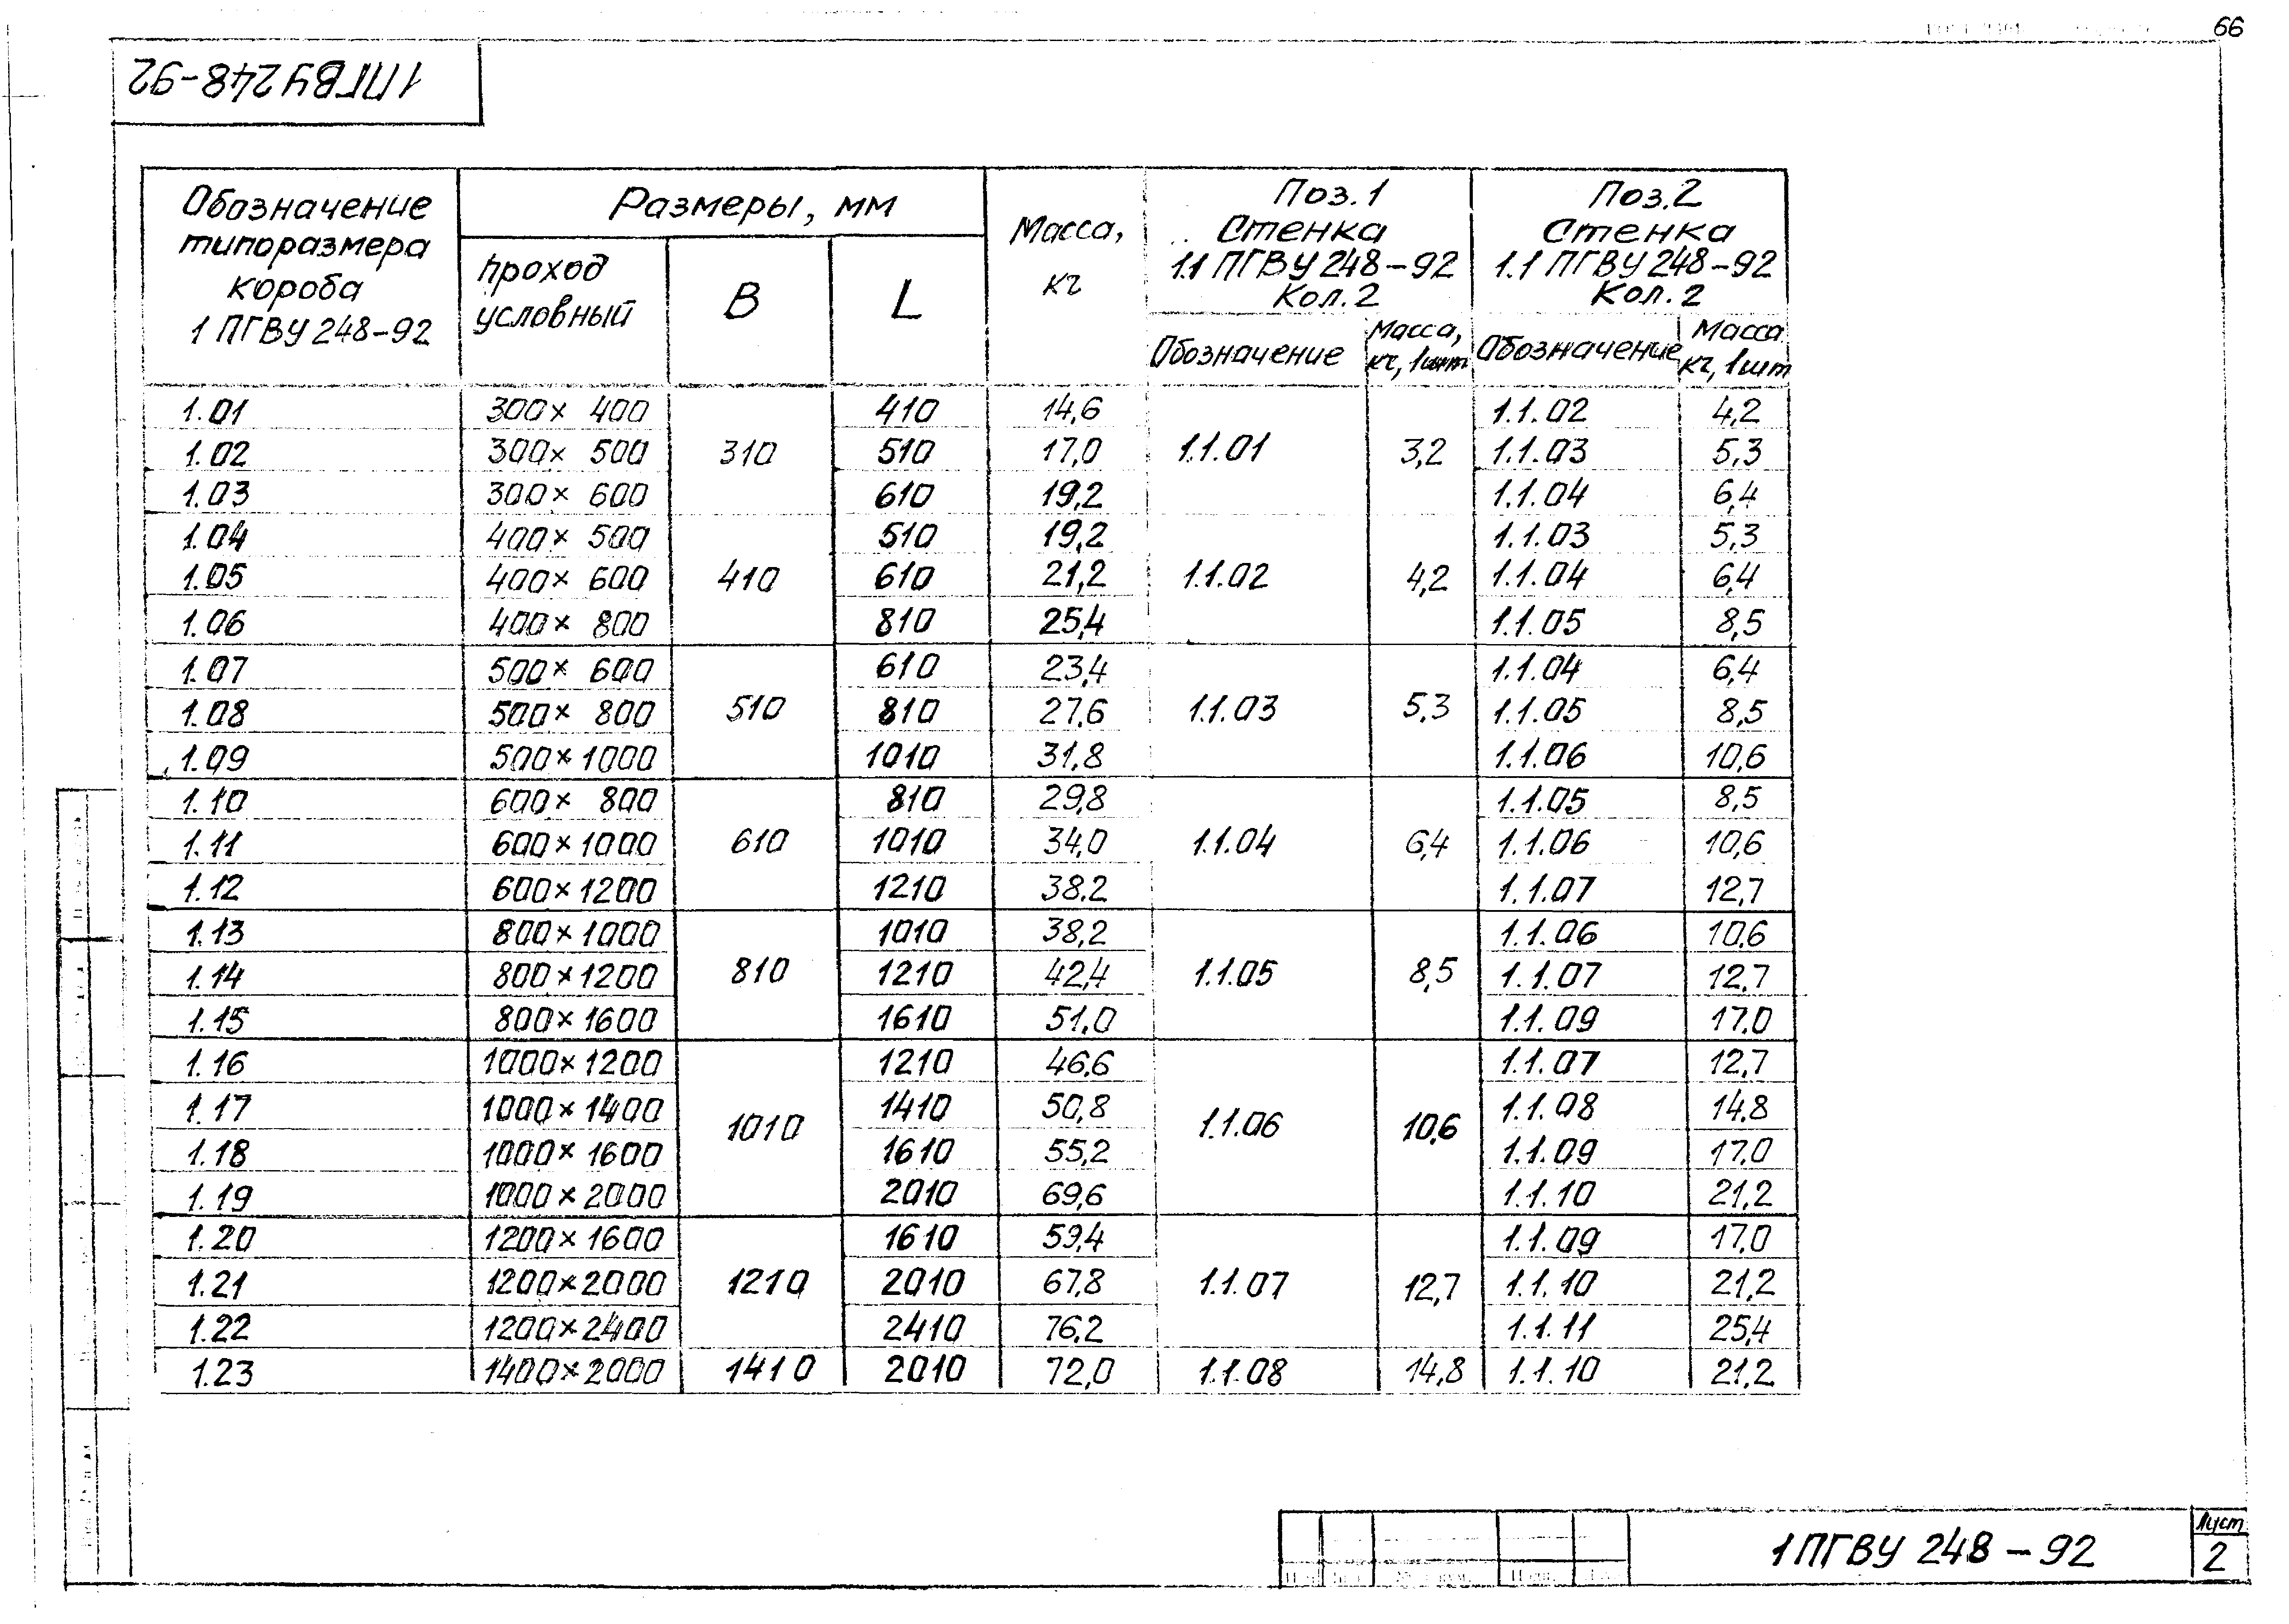 66
1ПГВУ 248-92
Обозначение типоразмера короба 1 ПГВУ 248-92 | Размеры, мм | Масса, кг | Поз.1 Стенка 1.1 ПГВУ 248-92 Кол.2 | Поз.2 Стенка 1.1 ПГВУ 248-92 Кол.2
проход условный | В | L | Обозначение | Масса, кг, 1шт | Обозначение | Масса кг, 1шт
1.01 300× 400 410 14,6 1.1.02 4,2
1.02 300× 500 310 510 17,0 1.1.01 3,2 1.1.03 5,3
1.03 300× 600 610 19,2 1.1.04 6,4
1.04 400× 500 510 19,2 1.1.03 5,3
1.05 400× 600 410 610 21,2 1.1.02 4,2 1.1.04 6,4
1.06 400× 800 810 25,4 1.1.05 8,5
1.07 500× 600 610 23,4 1.1.04 6,4
1.08 500× 800 510 810 27,6 1.1.03 5,3 1.1.05 8,5
1.09 500×1000 1010 31,8 1.1.06 10,6
1.10 600× 800 810 29,8 1.1.05 8,5
1.11 600×1000 610 1010 34,0 1.1.04 6,4 1.1.06 10,6
1.12 600×1200 1210 38.2 1.1.07 12,7
1.13 800×1000 1010 38,2 1.1.06 10,6
1.14 800×1200 810 1210 42,4 1.1.05 8,5 1.1.07 12,7
1.15 800×1600 1610 51,0 1.1.09 17,0
1.16 1000×1200 1210 46,6 1.1.07 12,7
1.17 1000×1400 1010 1410 50,8 1.1.06 10,6 1.1.08 14,8
1.18 1000×1600 1610 55,2 1.1.09 17,0
1.19 1000×2000 2010 69,6 1.1.10 21,2
1.20 1200×1600 1610 59,4 1.1.09 17,0
1.21 1200×2000 1210 2010 67,8 1.1.07 12,7 1.1.10 21,2
1.22 1200×2400 2410 76,2 1.1.11 25,4
1.23 1400×2000 1410 2010 72,0 1.1.08 14,8 1.1.10 21,2
1ПГВУ 248-92
Лист
2